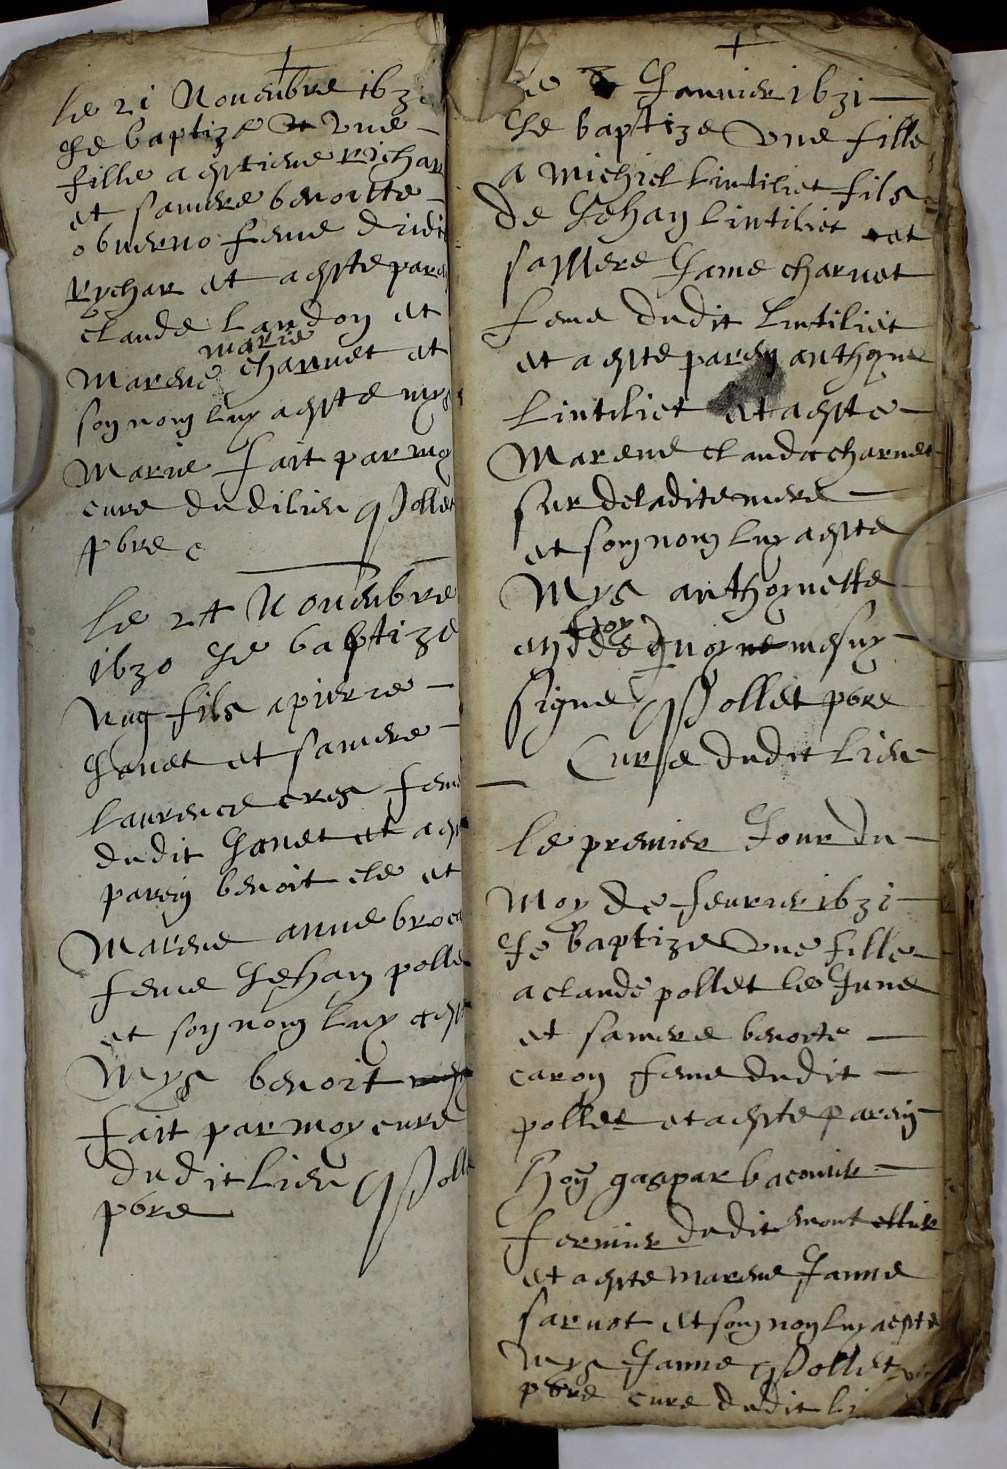 le 21 Novenbre 1630
Je baptize une
fille a estiene richar
et sa mere benoitte
feme dudit
Rychar et a este parein
claude Landon et
marie
Marene charvet et
son nom luy a este mys
Marie fait par moy
cure dudi lieu Pollet
pbre
le 24 Novenbre
1630 Je baptize
ung fils a pierre
Janet et sa mere
laurence cres feme
dudit Janet et a este
parein benoit cle et
Marene anne broce
feme Jehan pollet
et son nom luy a este
Mys benoit
fait par moy cure
dudit lieu Pollet
pbre
le Janvier 1631
Je baptize une fille
a Michiel Lintiliet fils
de Jehan Lintiliet et
sa Mere Jame charvet
feme dudit Lintiliet
et a este parein anthoyne
Lintiliet et a este
Marene clauda charvet
sur de la dite mere
et son nom luy a este
Mys anthoynette
en foy de quoy me suys
signe Pollet pbre
Cure dudit lieu
le premier Jour du
Moy de fevrier 1631
Je baptize une fille
a claude pollet le June
et sa mere benoite
caron feme dudit
pollet et a este parein
hon gaspar baconier
fermier dudit montellier
et a este marene Janne
sarvot et son nom luy a este
mys Janne Pollet
pbre cure dudit li